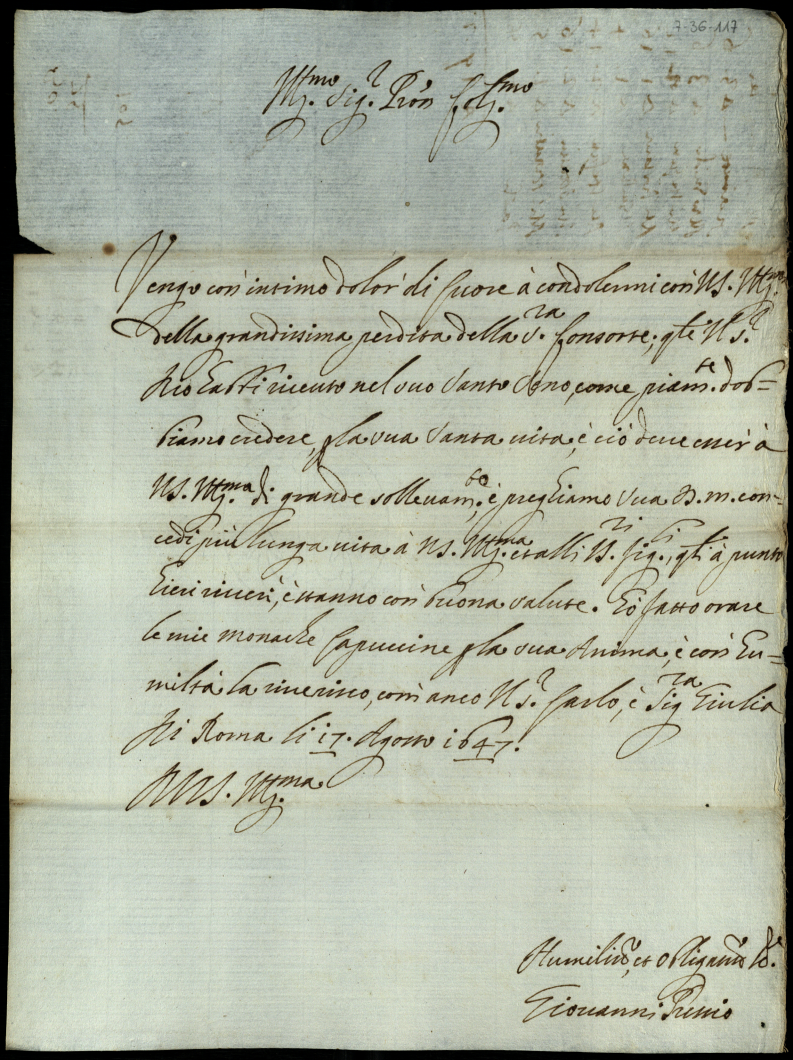 7-36-117
Ill.mo Sig.r Pron Col.mo
Vengo con intimo dolor di cuore à condolermi con V.S. Ill.ma
della grandissima perdita della S.ra Consorte, q.le il S.r
Dio habbi riceuto nel suo santo seno, come piam.te dob=
biamo credere, p la sua santa uita, è ciò deue esser à
V.S. Ill.ma di grande solleuam.to, è preghiamo Sua D. M. con=
cedi più lunga uita à V.S. Ill.ma et alli SS.ri fig.li, q.li à punto
hieri riueri, è stanno con buona salute. Hò fatto orare
le mie monache Capuccine p la sua Anima, è con hu=
miltà la riuerisco, com anco il S.r Carlo, è Sig.ra Giulia
Di Roma li 17. Agosto 1647.
D V.S. Ill.ma
Humiliss.o, et obligatiss.o se.
Giouanni